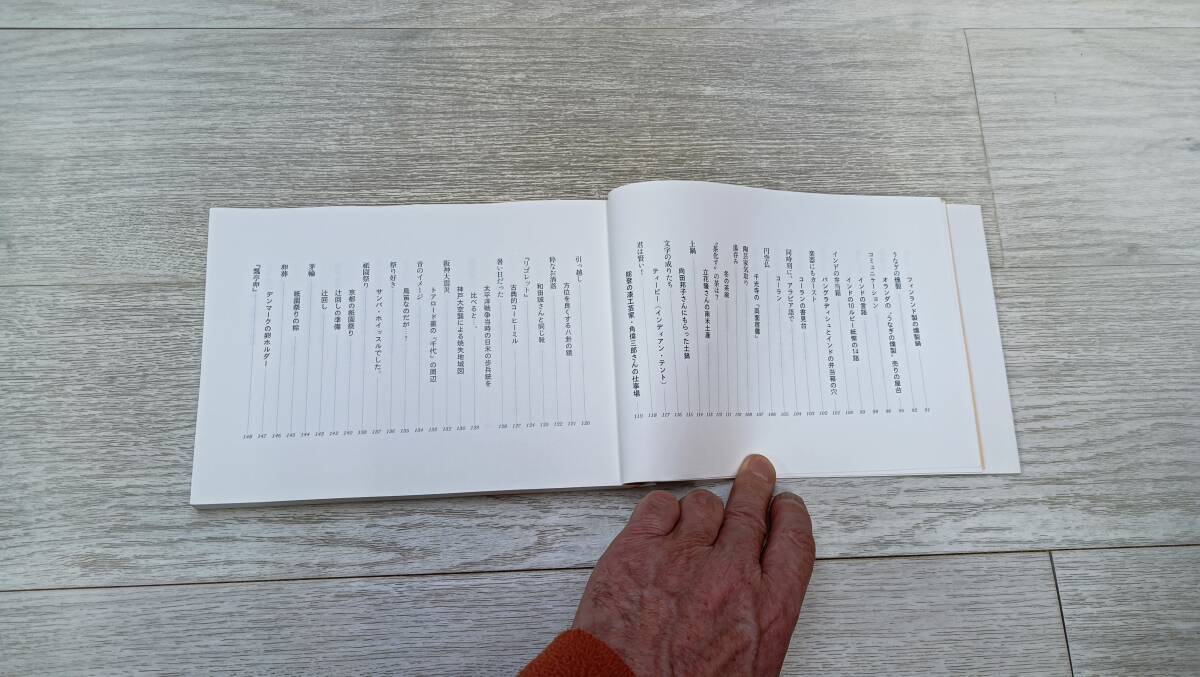 フィンランド製の燻製鍋
うなぎの燻製
オランダの「うなぎの燻製」売りの屋台
コミュニケーション
インドの言語
インドの10ルピー紙幣の14語
インドの弁当箱
バングラディシュとインドの弁当箱の穴
楽器にもカースト
コーランの書見台
同時刻に、アラビア語で
コーラン
円空仏
千光寺の『両面宿儺』
陶芸家気取り
湯呑み
“茶化す”の茶は?
立花隆さんの南米土産
土鍋
向田邦子さんにもらった土鍋 116
文字の成りたち 117
ティーピー(インディアン・テント) 118
君は賢い!
能登の漆工芸家・角偉三郎さんの仕事場 119
引っ越し 120
方位を良くする八卦の鏡 121
粋なお洒落 122
和田誠さんと同じ靴
『リゴレット』 124
古典的コーヒーミル 127
暑い日だった
太平洋戦争当時の日米の歩兵銃を
比べると…。
神戸大空襲による焼失地域図
阪神大震災
トアロード裏の『千代』の周辺
音のイメージ
鳥笛なのだが…?
祭り好き
サンバ・ホイッスルでした。
祇園囃り
京都の祇園祭り
辻回しの準備
辻回し
茅輪
祇園祭りの粽
卵葬
デンマークの卵ホルダー 147
『瓢亭卵』 148